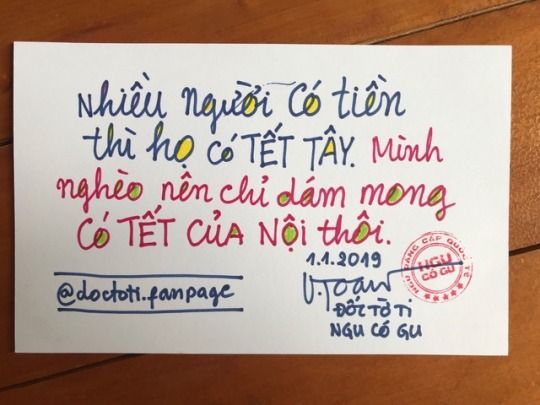 Nhiều người có tiền
thì họ có TẾT TÂY. Mình
nghèo nên chỉ dám mong
có TẾT CỦA NỘI thôi.
1.1.2019
@doctoti.fanpage
V.Toan
ĐỐC TỜ TI
NGU CÓ GU
NGU ĐẲNG CẤP QUỐC TẾ
NGU
CÓ GU